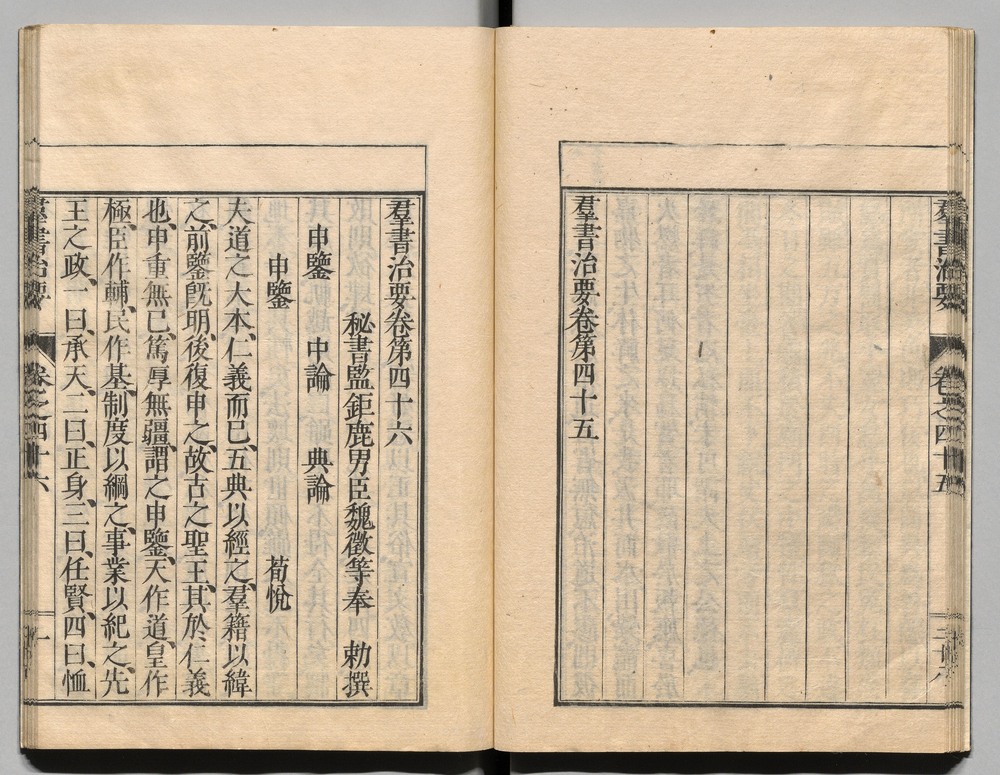 羣書治要 卷之四十五
羣書治要卷第四十五
羣書治要卷第四十六
秘書監鉅鹿男臣魏徵等奉　勅撰
申鑒　中論　典論
申鑒　荀悅
夫道之大本、仁義而已、五典以經之、羣籍以緯
之、前鑒既明、後復申之、故古之聖王、其於仁義
也、申重無已、篤厚無疆、謂之申鑒、天作道、皇作
極、臣作輔、民作基、制度以綱之、事業以紀之、先
王之政、一曰、承天、二曰、正身、三曰、任賢、四曰、恤
羣書治要 卷之四十六 一